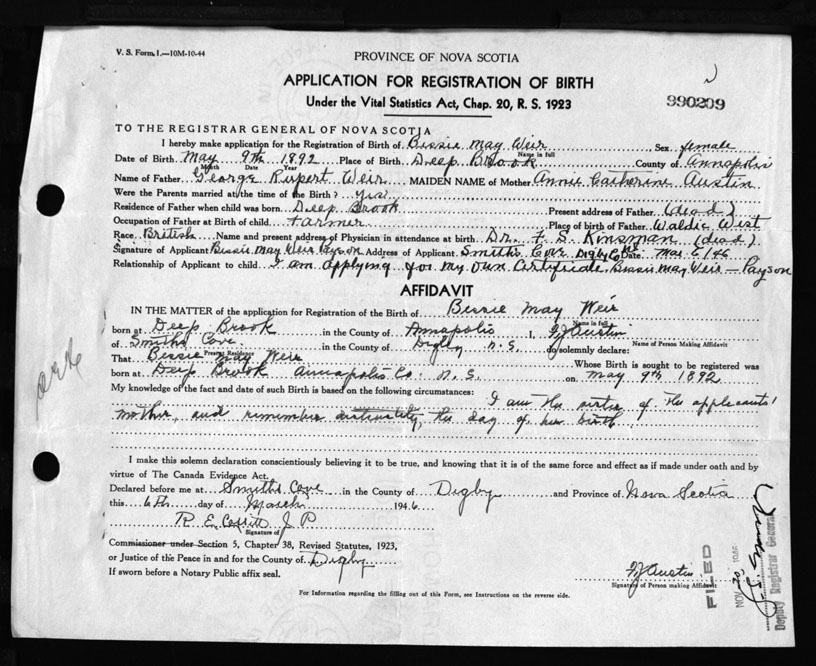 V. S. Form 1.—10M-10-44
PROVINCE OF NOVA SCOTIA
APPLICATION FOR REGISTRATION OF BIRTH
Under the Vital Statistics Act, Chap. 20, R. S. 1923
990209
TO THE REGISTRAR GENERAL OF NOVA SCOTIA
I hereby make application for the Registration of Birth of Bessie May Weir Sex female
Name in full
Date of Birth May 9th 1892 Place of Birth Deep Brook County of Annapolis
Month Date Year
Name of Father George Rupert Weir MAIDEN NAME of Mother Annie Catherine Austin
Were the Parents married at the time of the Birth? yes
Residence of Father when child was born Deep Brook Present address of Father (dead)
Occupation of Father at Birth of child Farmer Place of birth of Father Waldic West
Race British Name and present address of Physician in attendance at birth Dr. F. S. Kinsman (dead)
Signature of Applicant Bessie May Weir Payson Address of Applicant Smiths Cove Digby Co N.S. Date Mar 6/46
Relationship of Applicant to child I am applying for my own Certificate Bessie May Weir — Payson
AFFIDAVIT
IN THE MATTER of the application for Registration of the Birth of Bessie May Weir
Name in full
born at Deep Brook in the County of Annapolis I, F J Austin
Name of Person Making Affidavit
of Smiths Cove in the County of Digby N.S. do solemnly declare:
Present Residence
That Bessie May Weir Whose Birth is sought to be registered was
born at Deep Brook Annapolis Co. N.S. on May 9th 1892
My knowledge of the fact and date of such Birth is based on the following circumstances:
I am the sister of the applicants'
mother, and remember distinctly, the day of her birth
I make this solemn declaration conscientiously believing it to be true, and knowing that it is of the same force and effect as if made under oath and by
virtue of The Canada Evidence Act.
Declared before me at Smiths Cove in the County of Digby and Province of Nova Scotia
this 6th day of March 1946
R. E. J P
Signature of
Commissioner under Section 5, Chapter 38, Revised Statutes, 1923,
or Justice of the Peace in and for the County of Digby
If sworn before a Notary Public affix seal.
F J Austin
Signature of Person making Affidavit
For Information regarding the filling out of this Form, see Instructions on the reverse side.
FILED
NOV 20 1946
Deputy Registrar General